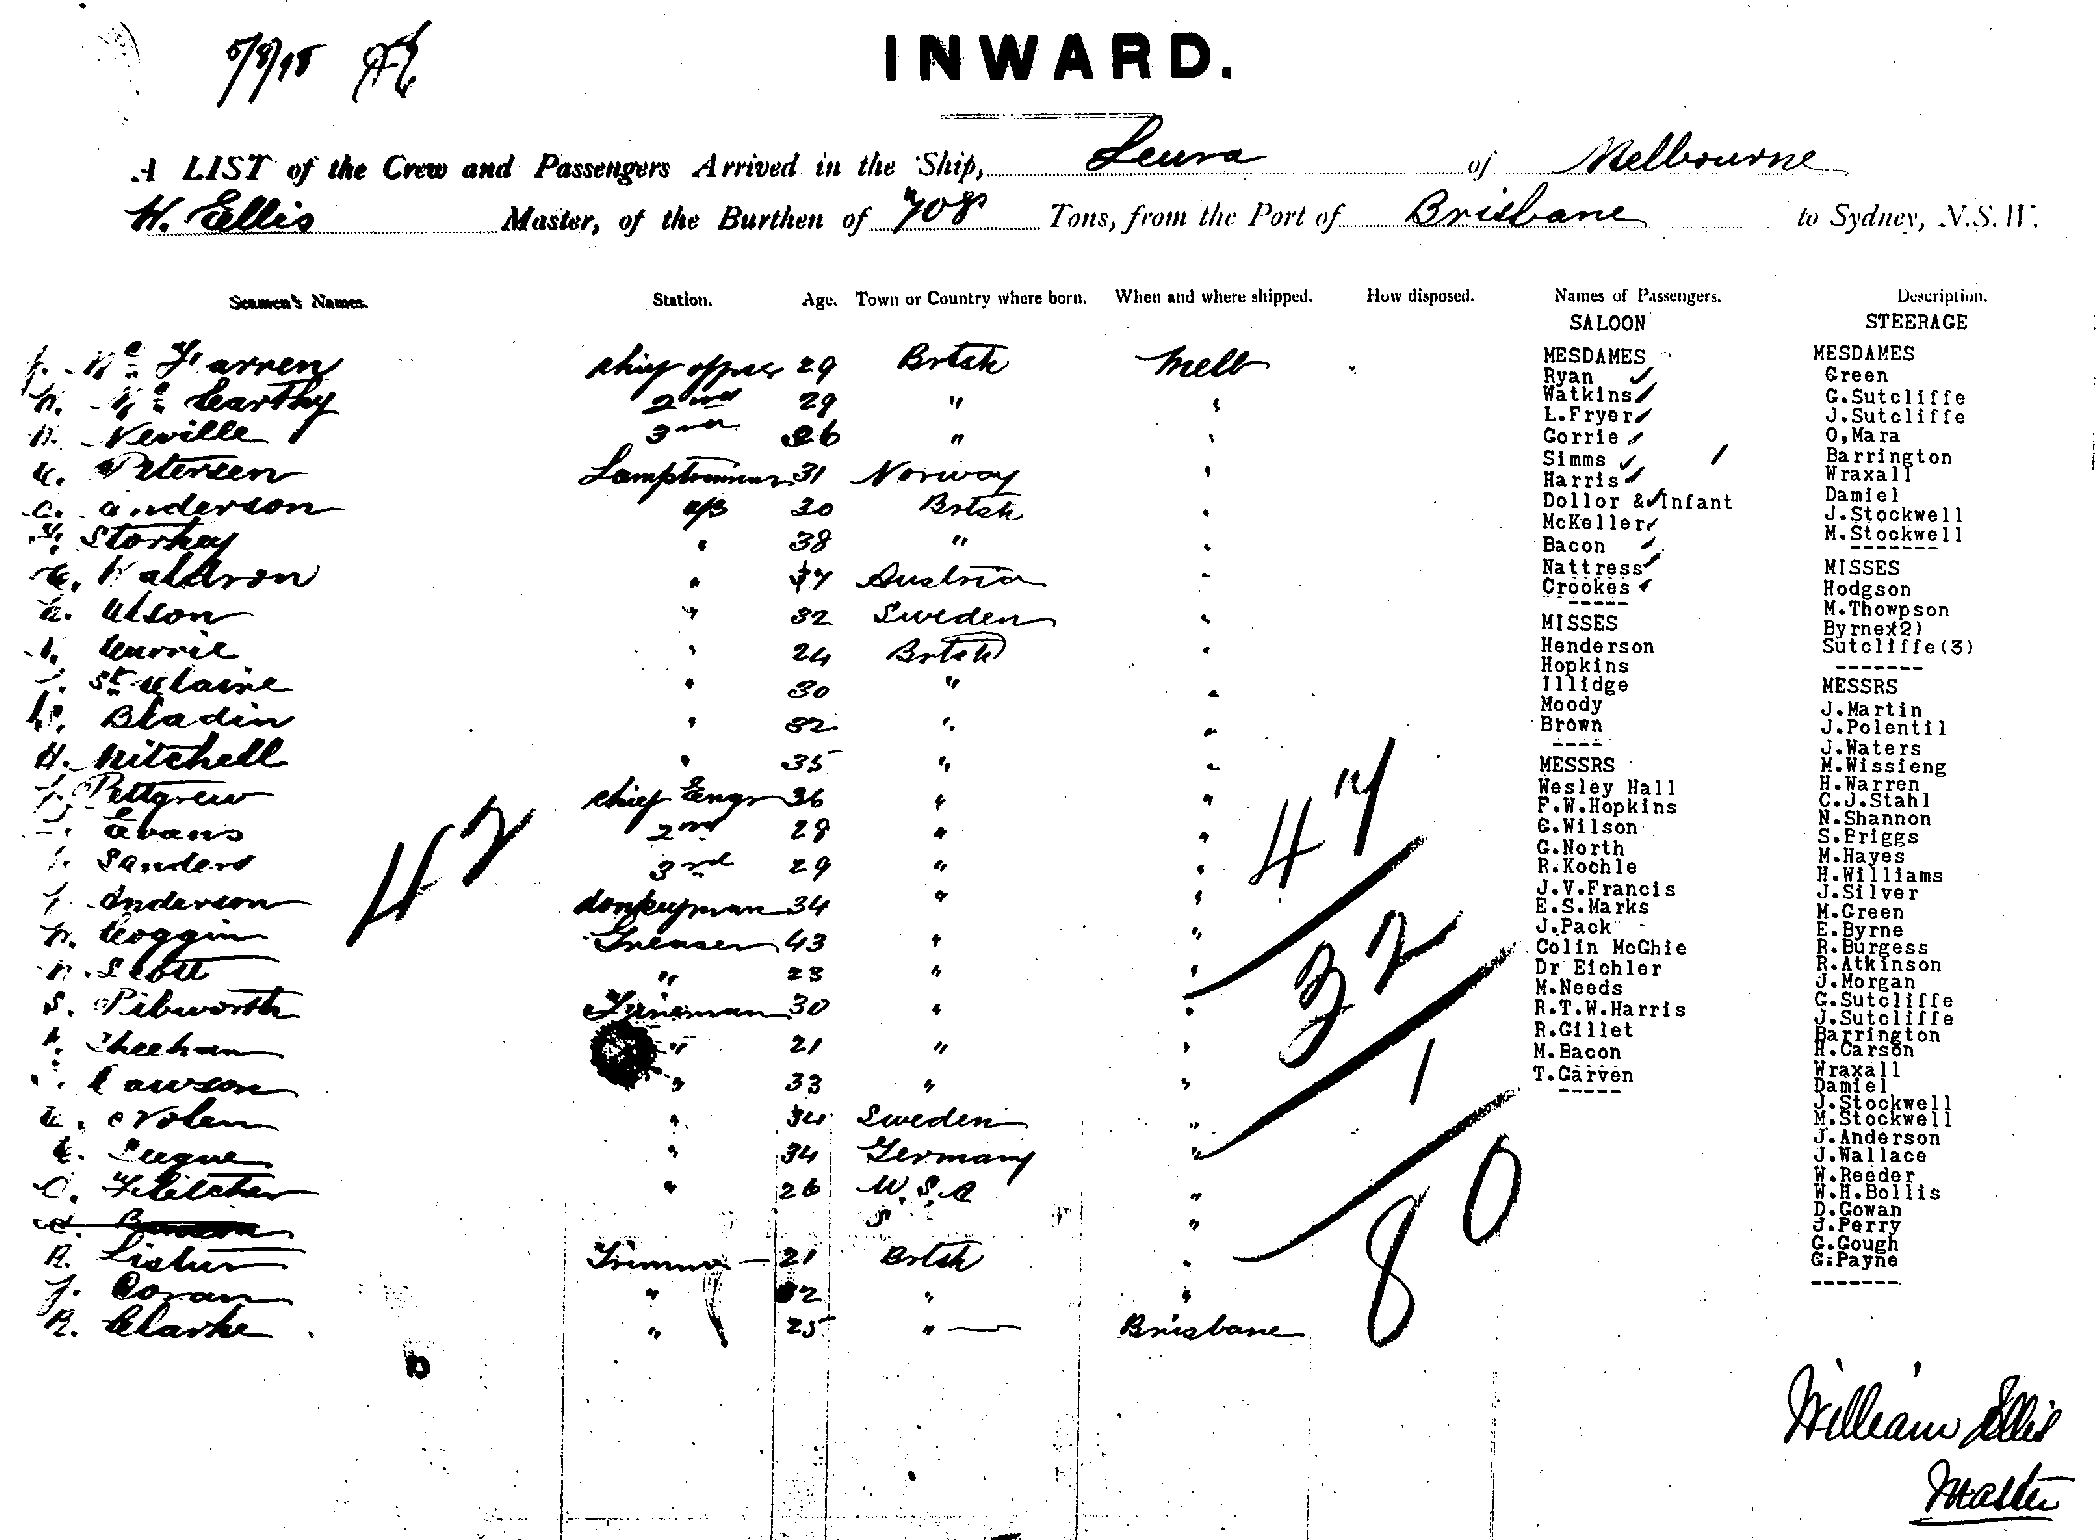 5/9/98
INWARD.
A LIST of the Crew and Passengers Arrived in the Ship, Leura of Melbourne
W. Ellis Master, of the Burthen of 708 Tons, from the Port of Brisbane to Sydney, N.S.W.
Seamen's Names. Station. Age. Town or Country where born. When and where shipped. How disposed. Names of Passengers. Description.
Mc Farren chief officer 29 Brtsh Melb
Mc Carthy 2nd 29 "  "
Neville 3rd 26 " "
Petersen Lamptrimmer 31 Norway "
C. Anderson a/b 20 Brtsh "
Storkey " 38 " "
Waldron " 37 Austria "
Olson " 32 Sweden "
Currie " 24 Brtsh "
St Claire " 30 " "
Bladin " 32 " "
H. Mitchell " 35 " "
Pettgrew chief Engr 36 " "
Evans 2nd 28 " "
Sanders 3rd 29 " "
Anderson donkeyman 34 " "
W. Coggin Greaser 43 " "
Scott " 23 " "
S. Pibworth Fireman 30 " "
Sheehan " 21 " "
Lawson " 33 " "
Nolen " 34 Sweden "
" 34 Germany "
Fletcher " 26 U.S.A "
"
R. Lister Trimmer 21 Brtsh "
J. Coran " 32 " "
R. Clarke " 25 " Brisbane
42
47
32
1
80
SALOON
MESDAMES
Ryan
Watkins
L.Fryer
Gorrie
Simms
Harris
Dollor & Infant
McKeller
Bacon
Nattress
Crookes
-----
MISSES
Henderson
Hopkins
Illidge
Moody
Brown
----
MESSRS
Wesley Hall
F.W.Hopkins
G.Wilson
G.North
R.Kochle
J.V.Francis
E.S.Marks
J.Pack
Colin McGhie
Dr Eichler
M.Needs
R.T.W.Harris
R.Gillet
M.Bacon
T.Garven
-----
STEERAGE
MESDAMES
Green
G.Sutcliffe
J.Sutcliffe
O,Mara
Barrington
Wraxall
Damiel
J.Stockwell
M.Stockwell
-------
MISSES
Hodgson
M.Thowpson
Byrne(2)
Sutcliffe(3)
-------
MESSRS
J.Martin
J.Polentil
J.Waters
M.Wissieng
H.Warren
C.J.Stahl
N.Shannon
S.Briggs
M.Hayes
H.Williams
J.Silver
M.Green
E.Byrne
R.Burgess
R.Atkinson
J.Morgan
G.Sutcliffe
J.Sutcliffe
Barrington
H.Carson
Wraxall
Damiel
J.Stockwell
M.Stockwell
J.Anderson
J.Wallace
W.Reeder
W.H.Bollis
D.Gowan
J.Perry
G.Gough
G.Payne
-------
William Ellis
Master